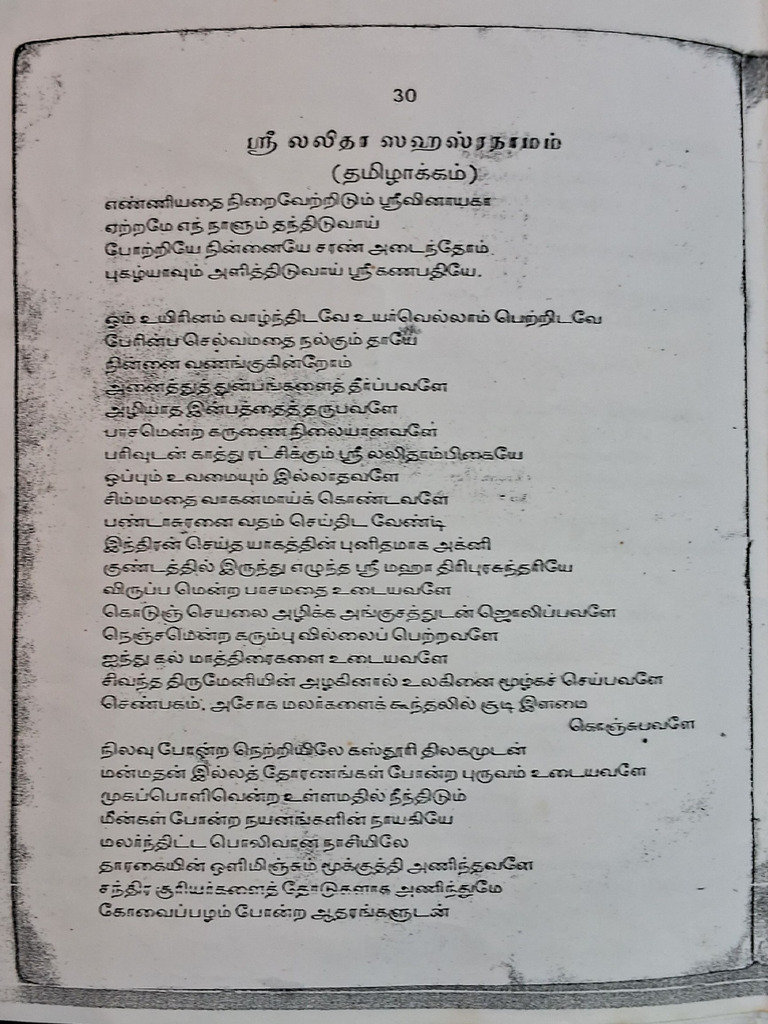 30
ஸ்ரீ லலிதா ஸஹஸ்ரநாமம்
(தமிழாக்கம்)
எண்ணியதை நிறைவேற்றிடும் ஸ்ரீவினாயகா
ஏற்றமே எந் நாளும் தந்திடுவாய்
போற்றியே நின்னையே சரண் அடைந்தோம்
புகழ்யாவும் அளித்திடுவாய் ஸ்ரீ கணபதியே.
ஓம் உயிரினம் வாழ்ந்திடவே உயர்வெல்லாம் பெற்றிடவே
பேரின்ப செல்வமதை நல்கும் தாயே
நின்னை வணங்குகின்றோம்
அனைத்துத் துன்பங்களைத் தீர்ப்பவளே
அழியாத இன்பத்தைத் தருபவளே
பாசமென்ற கருணை நிலையானவளே
பரிவுடன் காத்து ரட்சிக்கும் ஸ்ரீ லலிதாம்பிகையே
ஒப்பும் உவமையும் இல்லாதவளே
சிம்மமதை வாகனமாய்க் கொண்டவளே
பண்டாசுரனை வதம் செய்திட வேண்டி
இந்திரன் செய்த யாகத்தின் புனிதமாக அக்னி
குண்டத்தில் இருந்து எழுந்த ஸ்ரீ மஹா திரிபுரசுந்தரியே
விருப்ப மென்ற பாசமதை உடையவளே
கொடுஞ் செயலை அழிக்க அங்குசத்துடன் ஜொலிப்பவளே
நெஞ்சமென்ற கரும்பு வில்லைப் பெற்றவளே
ஐந்து கல் மாத்திரைகளை உடையவளே
சிவந்த திருமேனியின் அழகினால் உலகினை மூழ்கச் செய்பவளே
செண்பகம், அசோக மலர்களைக் கூந்தலில் சூடி இளமை
கொஞ்சுபவளே
நிலவு போன்ற நெற்றியிலே கஸ்தூரி திலகமுடன்
மன்மதன் இல்லத் தோரணங்கள் போன்ற புருவம் உடையவளே
முகப்பொளிவென்ற உள்ளமதில் நீந்திடும்
மீன்கள் போன்ற நயனங்களின் நாயகியே
மலர்ந்திட்ட பொலிவான நாசியிலே
தாரகையின் ஒளிமிஞ்சும் மூக்குத்தி அணிந்தவளே
சந்திர சூரியர்களைத் தோடுகளாக அணிந்துமே
கோவைப்பழம் போன்ற ஆதரங்களுடன்